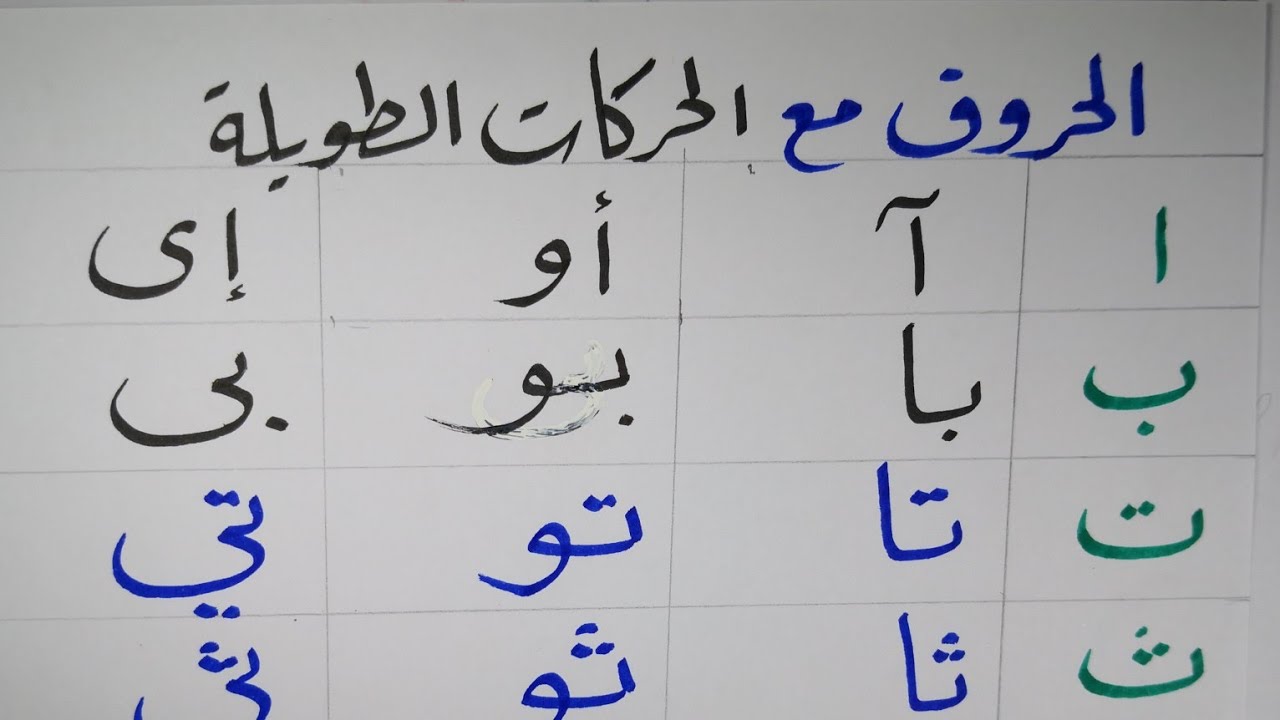 الحروف مع الحركات الطويلة
ا آ أو إى
ب با بو بى
ت تا تو تي
ث ثا ثو ثي